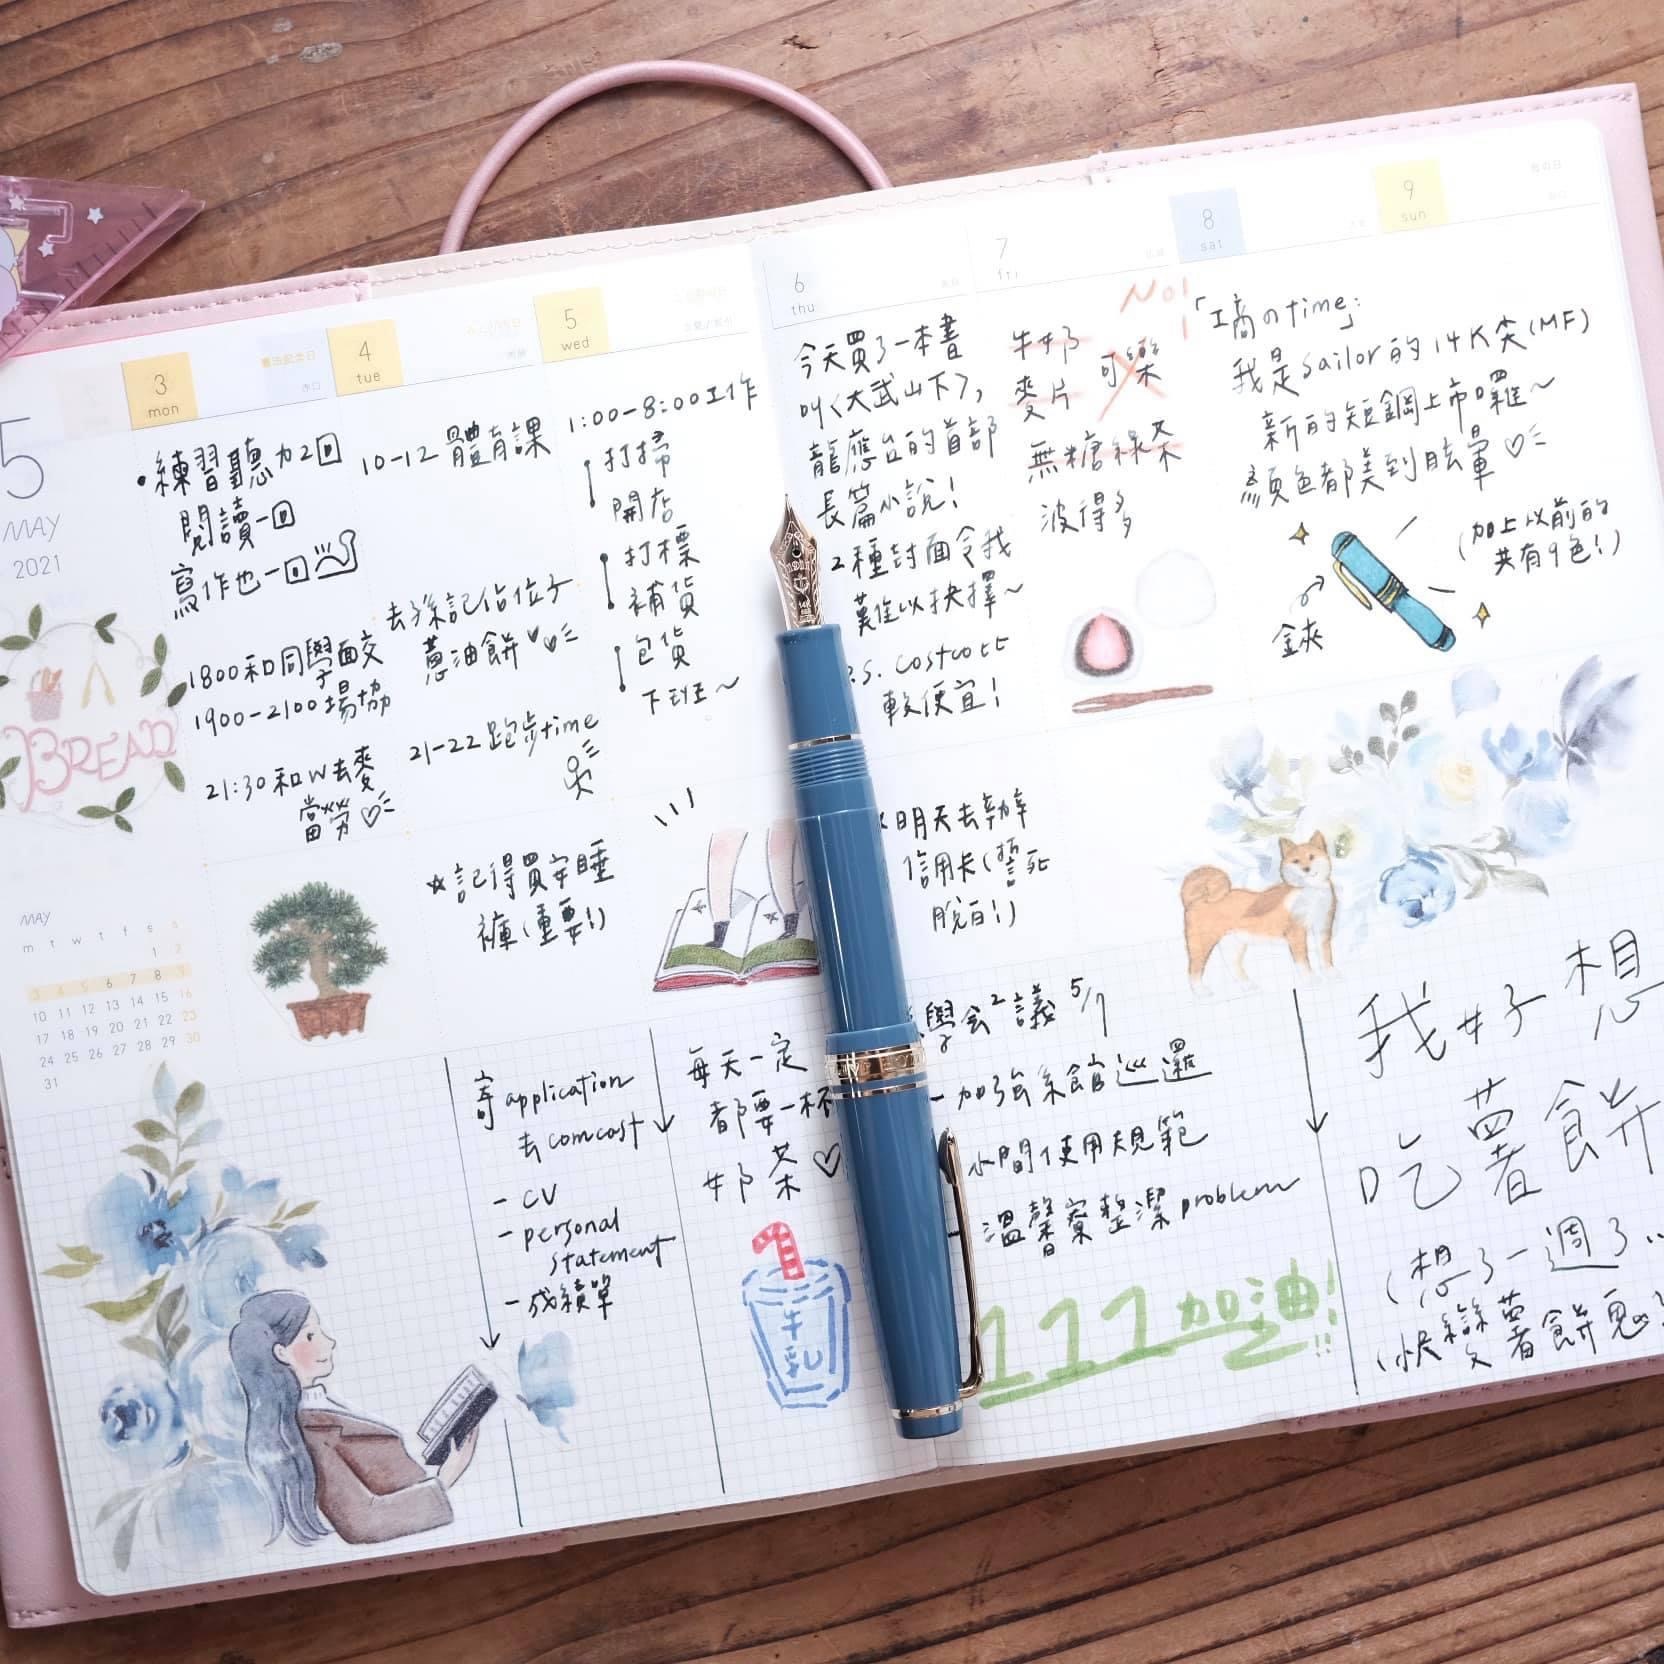 5
MAY
2021
BREAD
MAY
m t w t f s s
1 2
3 4 5 6 7 8 9
10 11 12 13 14 15 16
17 18 19 20 21 22 23
24 25 26 27 28 29 30
31
3
mon
憲法記念日
赤口
•練習聽力2回
閱讀一回
寫作也一回
1800和同學面交
1900-2100揚協
21:30和W去麥
當勞♡
4
tue
10-12 體育課
去孫記佔位子
蔥油餅
21-22 跑步time
☆記得買安睡
褲(重要!)
5
wed
1:00-8:00工作
打掃
開店
打標
補貨
包貨
下班~
寄 application
去 comcast
- CV
- personal
statement
- 成績單
每天一定
都要一杯
奶茶♡
牛
乳
6
thu
今天買了一本書
叫<大武山下>,
龍應台的首部
長篇小說!
2種封面令我
難以抉擇~
P.S. costco比
較便宜!
明天去辦
信用卡(誓死
脫白!)
7
fri
No!
牛奶
可樂
麥片
無糖綠茶
波得多
8
sat
9
sun
母の日
「工商のtime」:
我是sailor的14K尖(MF)
新的短鋼上市囉~
顏色都美到眩暈♡
(加上以前的
共有9色!)
鋏
學會 議 5/7
- 加強系館巡邏
小間使用規範
溫馨寮整潔problem
111加油!
我好想
吃薯餅
(想了一週了..
(快變薯餅鬼